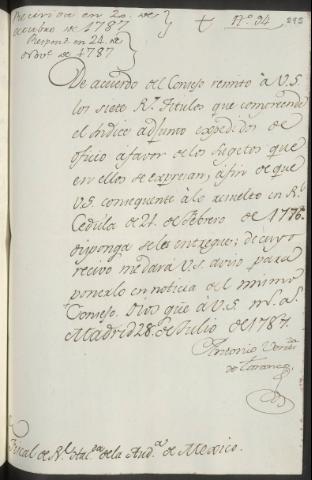 Recivida en 20. de
octubre de 1787
Respond. en 24. de
1787
N.º 94
De acuerdo del Consejo remito à V.S.
los siete R.s Titulos que comprende
el indice adjunto expedidos de
oficio à favor de los sugetos que
en ellos se expresan; à fin de que
V.S. consequente à lo resuelto en R.l
Cedula de 21. de Febrero de 1776.
disponga se les entregue; de cuyo
recivo me dará V.S. aviso para
ponerlo en noticia del mismo
Consejo. Dios gûe à V.S. m.s a.s
Madrid 28. de Julio de 1787.
Antonio Ventura
de Taranco
Fiscal de R.l Haz.da de la Aud.a de Mexico.